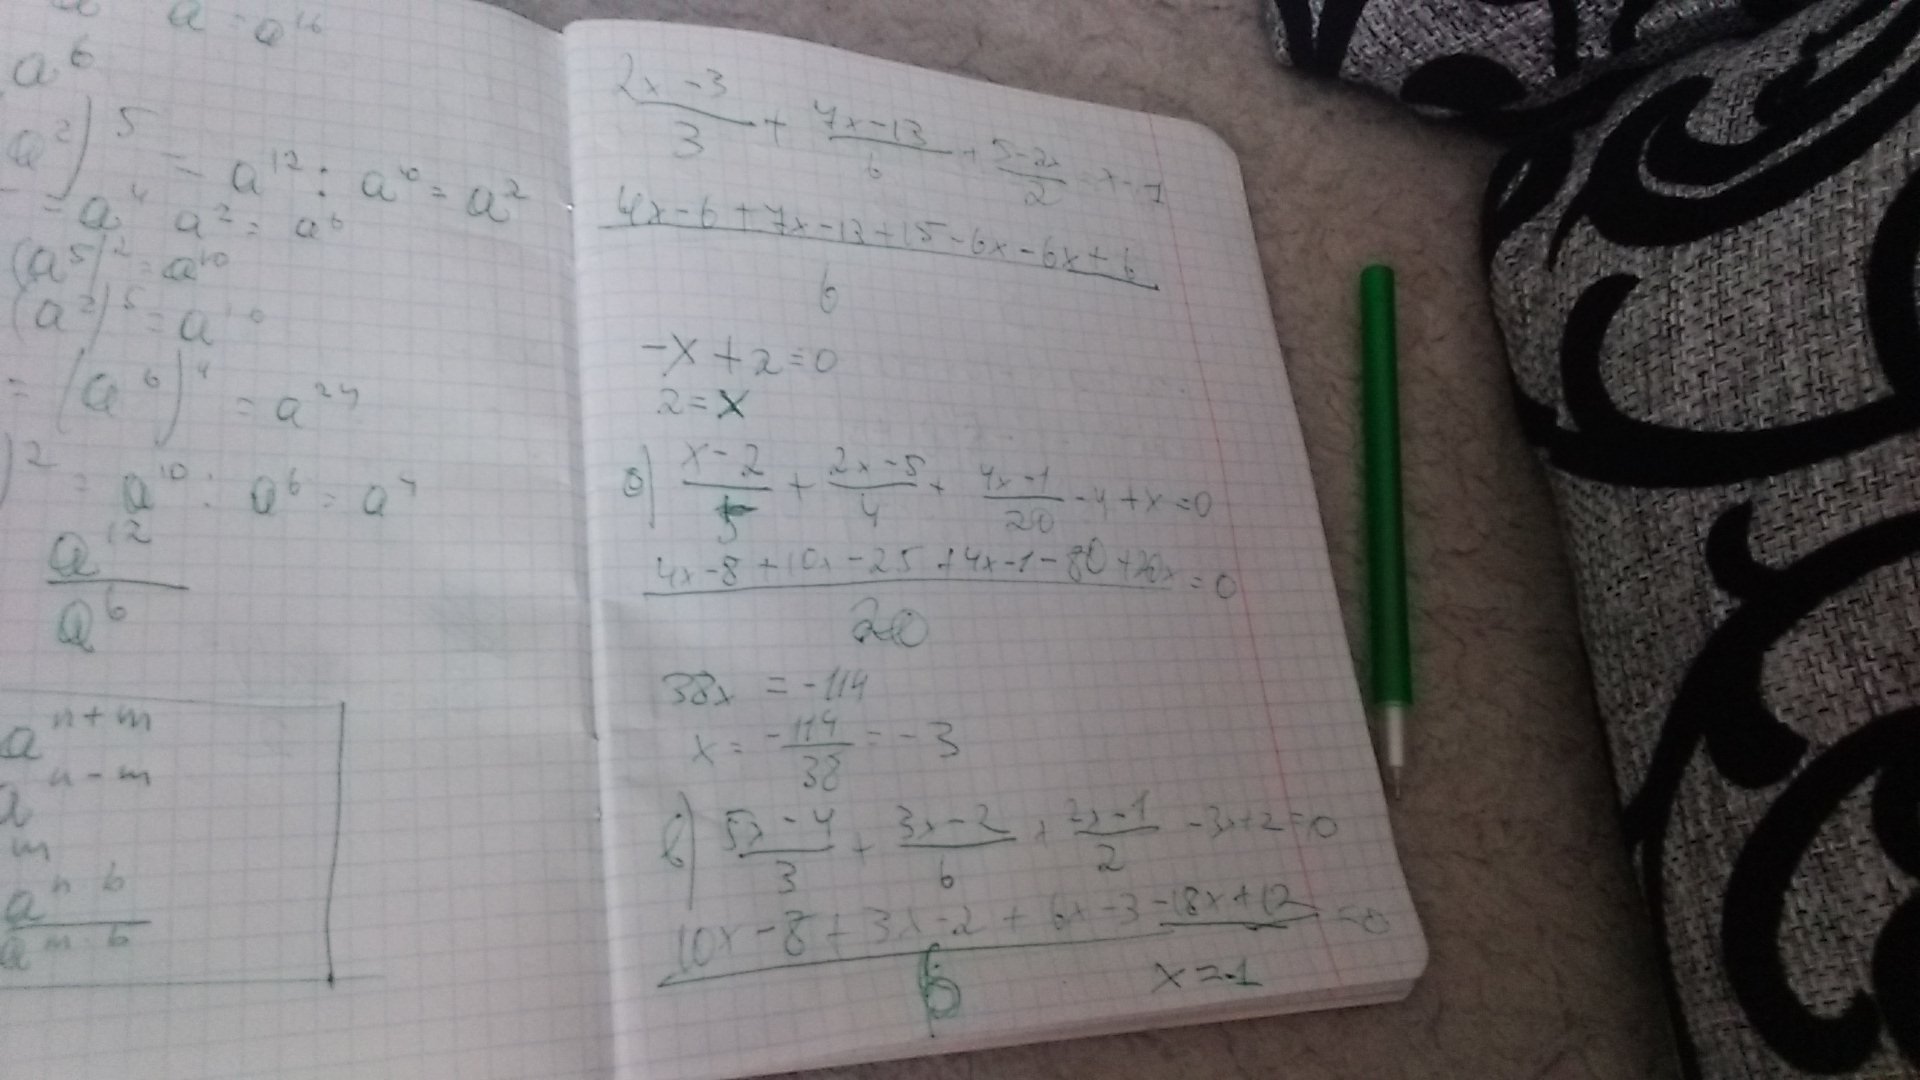 a = a¹⁶
a⁶
a²)⁵ = a¹² : a¹⁰ = a²
= a⁴ a² = a⁶
(a⁵)² = a¹⁰
(a²)⁵ = a¹⁰
= (a⁶)⁴ = a²⁴
)² = a¹⁰ : a⁶ = a⁴
a¹²
a⁶
a n+m
a n-m
m
a n b
a m b
2x-3 / 3 + 7x-13 / 6 + 5-2x / 2 = x-1
4x-6+7x-13+15-6x-6x+6
6
-x+2=0
2=x
б) x-2 / 5 + 2x-5 / 4 + 4x-1 / 20 - 4 + x = 0
4x-8+10x-25+4x-1-80+20x = 0
20
38x = -114
x = - 114 / 38 = -3
в) 5x-4 / 3 + 3x-2 / 6 + 2x-1 / 2 - 3x+2=0
10x-8+3x-2+6x-3-18x+12 = 0
6
x=-1